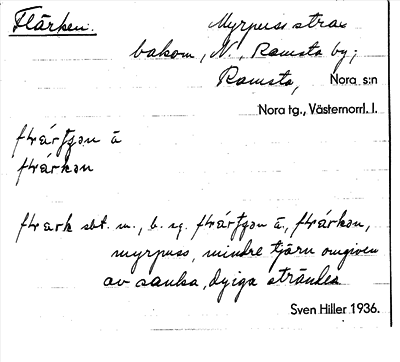 Flärken.
Myrpuss strax
bakom, N., Ramsta by;
Ramsta, Nora s:n
Nora tg., Västernorrl. l.
flärtjən ä
flärkən
flark sbt. m., b. sg. flärtjən ä., flärkən,
myrpuss, mindre tjärn omgiven
av sanka, dyiga stränder
Sven Hiller 1936.